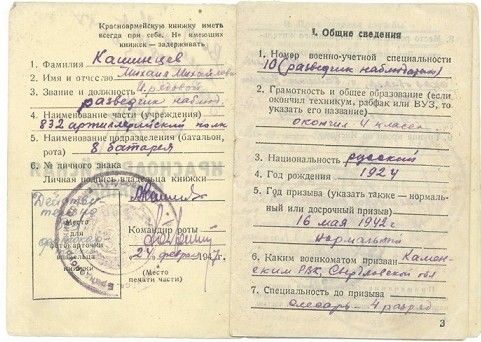 Красноармейскую книжку иметь
всегда при себе. Не имеющих
книжек — задерживать
1. Фамилия Кашинцев
2. Имя и отчество Михаил Михайлович
3. Звание и должность Рядовой
разведчик наблюд.
4. Наименование части (учреждения)
832 артиллерийский полк
5. Наименование подразделения (батальон,
рота) 8 батарея
6. № личного знака
Личная подпись владельца книжки
Место
для
фотокарточки
владельца
книжки
Командир роты
24 февр. 194
(Место
печати части)
I. Общие сведения
1. Номер военно-учетной специальности
10 (разведчик наблюдатель)
2. Грамотность и общее образование (если
окончил техникум, рабфак или ВУЗ, то
указать его название)
окончил 4 класса
3. Национальность русский
4. Год рождения 1924
5. Год призыва (указать также — нормаль-
ный или досрочный призыв)
16 мая 1942 г
нормальный
6. Каким военкоматом призван Камен-
ским РВК, Свердловской обл
7. Специальность до призыва
слесарь - 4 разряд
3